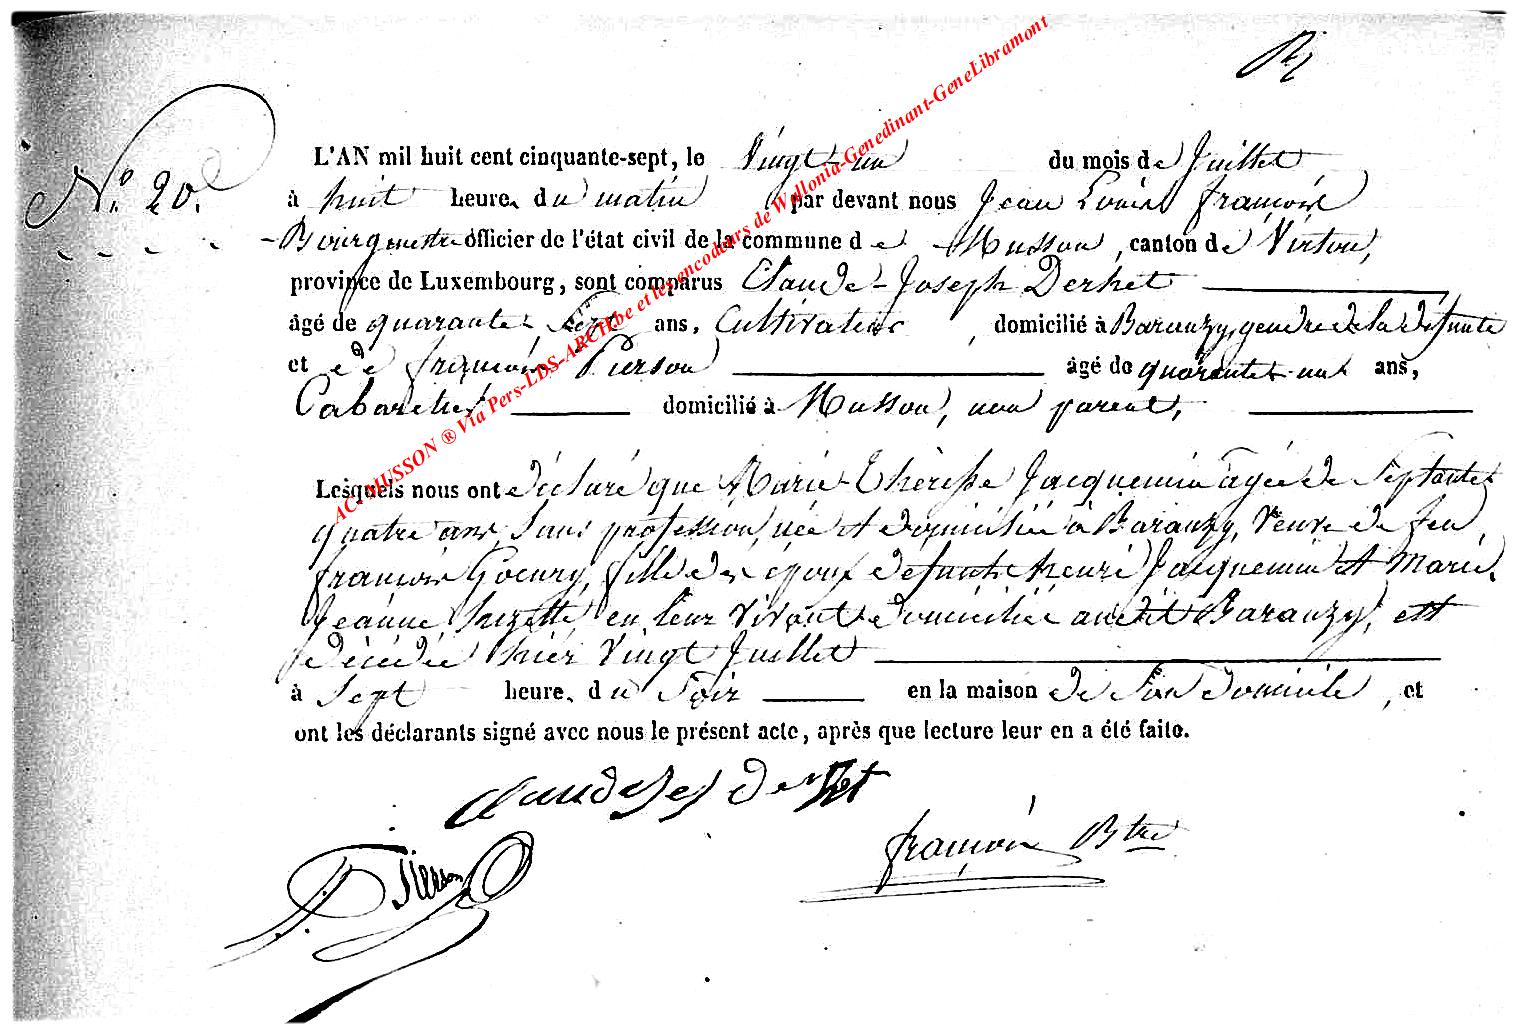 N.° 20.
L'AN mil huit cent cinquante-sept, le Vingt-un du mois de Juillet
à huit heure. du matin par devant nous Jean Louis françois
Bourgmestre officier de l'état civil de la commune de Musson, canton de Virton,
province de Luxembourg, sont comparus Claude-Joseph Derhet
âgé de quarante-sept ans, Cultivateur, domicilié à Baranzy, gendre de la défunte
et de françois Pierson âgé de quarante-un ans,
Cabaretier domicilié à Musson, non parent,
Lesquels nous ont déclaré que Marie-Thérèse Jacquemin agée de Septante
quatre ans, Sans profession, née et domiciliée à Baranzy, Veuve de feu
françois Goeury, fille des époux defunts henri Jacquemin et Marie
Jeanne en leur Vivant domiciliés audit Baranzy, est
décédée hier Vingt Juillet
à Sept heure. du Soir en la maison de Son domicile, et
ont les déclarants signé avec nous le présent acte, après que lecture leur en a été faite.
françois Btre
Pierson
AC-MUSSON ® Via Pers-LDS-ARCH.be et les encodeurs de Wallonia-Genedinant-GeneLibramont